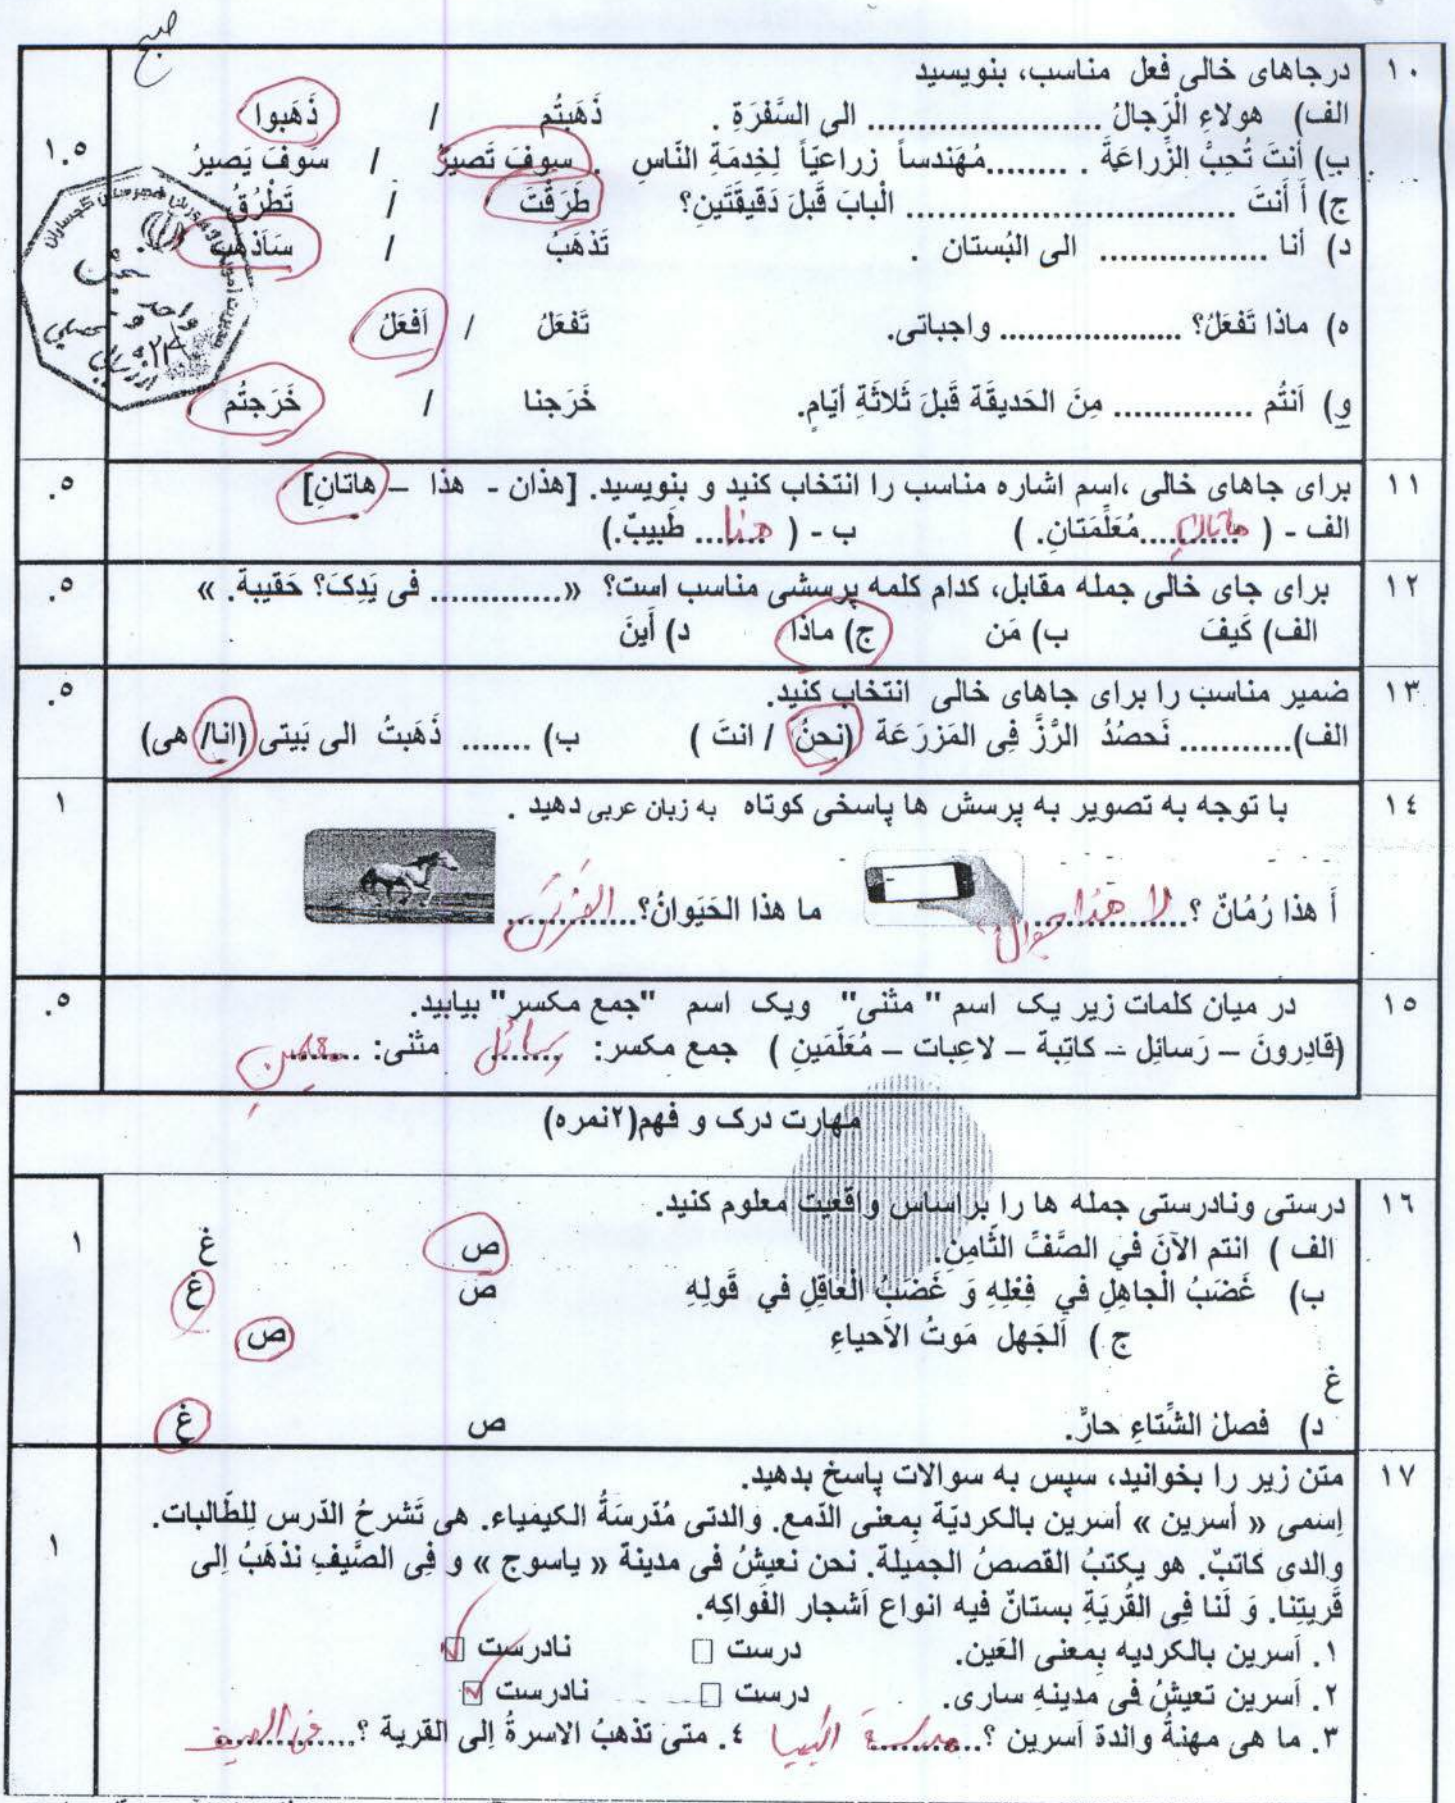 صبح
۱۰ درجاهای خالی فعل مناسب، بنویسید
الف) هولاءِ الْرَجالُ ...................... الی السَّفرَةِ . ذَهَبتُم / ذَهَبوا
۱.۵ ب) أنتَ تُحِبُّ الزَّراعَةَ . ........مُهَندساً زراعیّاً لِخِدمَةِ النّاسِ . سوفَ تَصیرُ / سَوفَ یَصیرُ
ج) أ أنتَ ............................... الْبابَ قَبلَ دَقیقَتَینِ؟ طَرَقْتَ / تَطْرُقُ
د) أنا ................. الی البُستان . تَذْهَبُ / سَاَذْهَبُ
ه) ماذا تَفعَلُ؟ .................. واجباتی. تَفعَلُ / اَفعَلُ
و) اَنتُم .............. مِنَ الحَدیقَة قَبلَ ثَلاثَةِ اَیّامٍ. خَرَجنا / خَرَجتُم
۱۱ برای جاهای خالی ،اسم اشاره مناسب را انتخاب کنید و بنویسید. [هذان - هذا – هاتانِ] ۵.
الف - ( هاتانِ...........مُعَلِّمَتانِ. ) ب - ( هذا........ طَبیبٌ.)
۱۲ برای جای خالی جمله مقابل، کدام کلمه پرسشی مناسب است؟ «............. فی یَدِکَ؟ حَقیبة. » ۵.
الف) کَیفَ ب) مَن ج) ماذا د) أینَ
۱۳ ضمیر مناسب را برای جاهای خالی انتخاب کنید. ۵.
الف)........... نَحصُدُ الرَّزَّ فِی المَزرَعَة (نحنُ / انتَ ) ب) ....... ذَهَبتُ الی بَیتی (انا/ هی)
۱٤ با توجه به تصویر به پرسش ها پاسخی کوتاه به زبان عربی دهید . ۱
أ هذا رُمُانٌ ؟................ لا هذا جوال ما هذا الحَیَوانُ؟............. الفَرَس
۱۵ در میان کلمات زیر یک اسم " مثنی" ویک اسم "جمع مکسر" بیابید. ۵.
(قادِرونَ – رَسائِل – کاتِبة – لاعِبات – مُعَلّمَینِ ) جمع مکسر: رسائل....... مثنی: ........ معلمین
مهارت درک و فهم(۲نمره)
۱۶ درستی ونادرستی جمله ها را براساس واقعیت معلوم کنید. ۱
الف ) انتم الآنَ في الصَّفِّ الثَّامِنِ. ص غ
ب) غَضَبُ الْجاهِلِ في فِعْلِهِ وَ غَضَبُ الْعاقِلِ في قَولِهِ ص غ
ج ) اَلجَهل مَوتُ الاَحیاءِ ص
غ
د) فصلُ الشِّتاءِ حارٌّ. ص غ
۱۷ متن زیر را بخوانید، سپس به سوالات پاسخ بدهید.
۱ اِسمی « أسرین » أسرین بالکردیّة بِمعنی الدّمع. والدتی مُدّرسَةُ الکیمیاء. هی تَشرحُ الدّرس لِلطّالبات.
والدی کاتبٌ. هو یکتبُ القصصُ الجمیلة. نحن نعیشُ فی مدینة « یاسوج » و فِی الصَّیفِ نذهَبُ اِلی
قَریتِنا. وَ لَنا فِی القُریَةِ بستانٌ فیه انواع اَشجار الفَواکِه.
۱. اَسرین بالکردیه بِمعنی العَین. درست □ نادرست ☑
۲. اَسرین تعیشُ فی مدینهِ ساری. درست □ نادرست ☑
۳. ما هی مهنةُ والدة اَسرین ؟............ مدرسة الکیمیا ٤. متی تذهبُ الاسرةُ اِلی القریة ؟............... فی الصیف